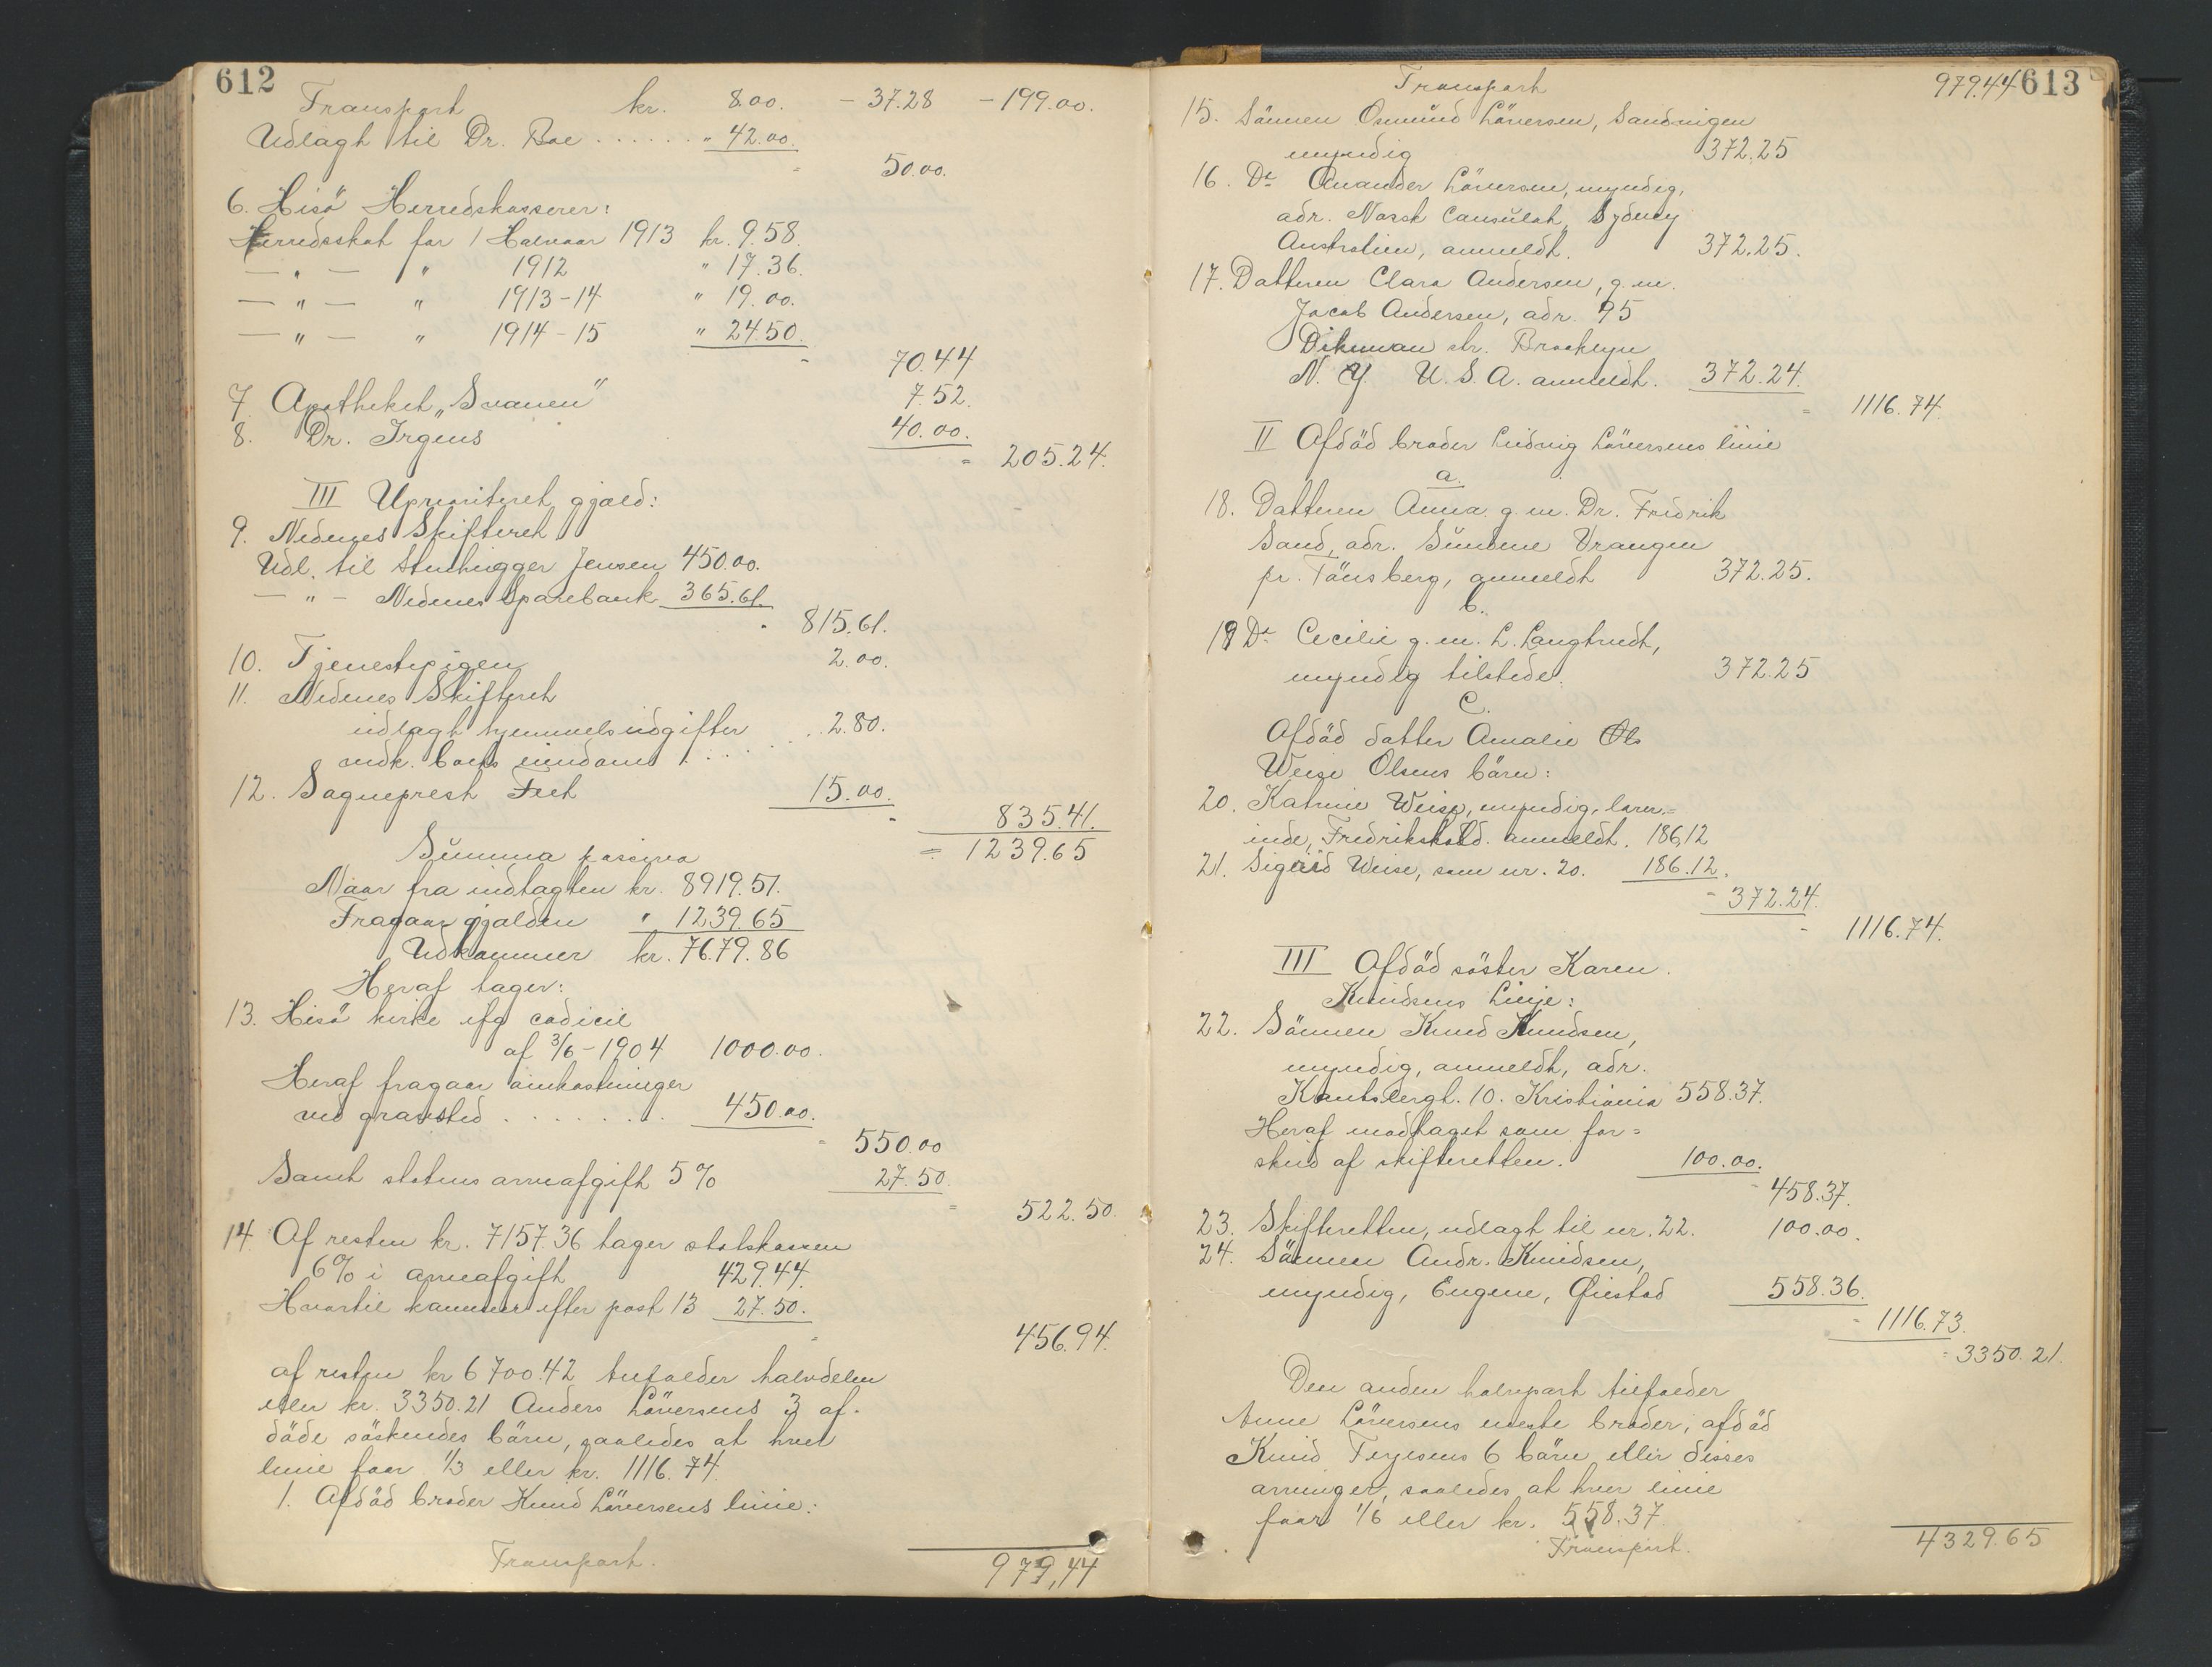 612
Transport kr. 8.00. - 37.28 - 199.00.
Udlagt til Dr. Boe ...... " 42.00.
= 50.00.
6. Hisö Herredskasserer:
Herredsskat for 1 Halvaar 1913 kr. 9.58.
— " — " 1912 " 17.36.
— " — " 1913-14 " 19.00.
— " — " 1914-15 " 24.50.
- 70.44
7 Apotheket „Svanen" 7.52.
8. Dr. Irgens 40.00.
= 205.24.
III Uprioriteret gjæld:
9. Nedenes Skifteret
Udl. til Stenhugger Jensen 450.00.
— " — Nedenes Sparebank 365.61.
- 815.61.
10. Tjenestepigen 2.00.
11. Nedenes Skifteret
udlagt hjemmelsudgifter
vedk. boets eiendom ..... 2.80.
12. Sogneprest Feet 15.00.
- 835.41.
Summa passiva = 1239.65
Naar fra indtægten kr. 8919.51.
Fragaar gjælden " 1239.65
Udkommer kr. 7679.86
Heraf tager:
13. Hisö kirke ifg codicil
af 3/6-1904 1000.00.
Heraf fragaar omkostninger
ved gravsted ....... 450.00.
= 550.00
Samt statens arveafgift 5% 27.50.
= 522.50.
14. Af resten kr. 7157.36 tager statskassen
6% i arveafgift 429.44.
Hvortil kommer efter post 13 27.50.
- 456.94.
af resten kr 6700.42 tilfalder halvdelen
eller kr. 3350.21 Anders Löversens 3 af-
döde söskendes börn, saaledes at hver
linie faar 1/3 eller kr. 1116.74.
1. Afdöd broder Knud Löversens linie:
Transport. 979,44
613
Transport 979.44
15. Sönnen Osmund Löversen, Sandvigen
myndig 372.25
16. Do Anander Löversen, myndig,
adr. Norsk Consulat, Sydney
Australien, anmeldt. 372.25.
17. Datteren Clara Andersen, g. m.
Jacob Andersen, adr. 95
Dikeman str. Brooklyn
N. Y. U. S. A. anmeldt. 372.24.
= 1116.74.
II Afdöd broder Ludvig Löversens linie
a.
18. Datteren Anna g. m. Dr. Fredrik
Sand, adr. Sundene Vrangen
pr. Tönsberg, anmeldt 372.25.
b.
19 Do Cecilie g. m. L. Langtvedt,
myndig tilstede. 372.25
C.
Afdöd datter Amalie Ols
Weise Olsens börn:
20. Katrine Weise, myndig, lærer-
inde, Fredrikshald. anmeldt. 186,12
21. Sigrid Weise, som nr. 20. 186.12.
- 372.24.
- 1116.74.
III Afdöd söster Karen.
Knudsens Linje:
22. Sönnen Knud Knudsen,
myndig, anmeldt, adr.
Krantsbergt. 10. Kristiania 558.37.
Heraf modtaget som for-
skud af skifteretten. 100.00.
- 458.37.
23. Skifteretten, udlagt til nr. 22. 100.00.
24. Sönnen Andr. Knudsen,
myndig, Engene, Øiestad 558.36.
- 1116.73.
= 3350.21.
Den anden halvpart tilfalder
Anne Löversens eneste broder, afdöd
Knud Terjesens 6 börn eller disses
arvinger, saaledes at hver linie
faar 1/6 eller kr. 558.37.
Transport. 4329.65